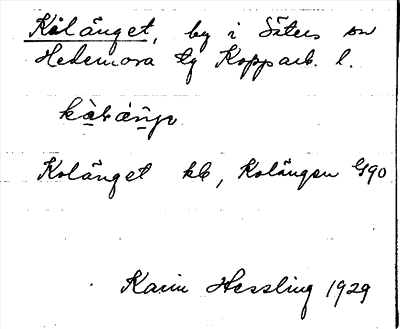 Kålänget, by i Säters sn
Hedemora tg Kopparb. l.
Kolänget kb, Kolängen G90
Karin Hessling 1929